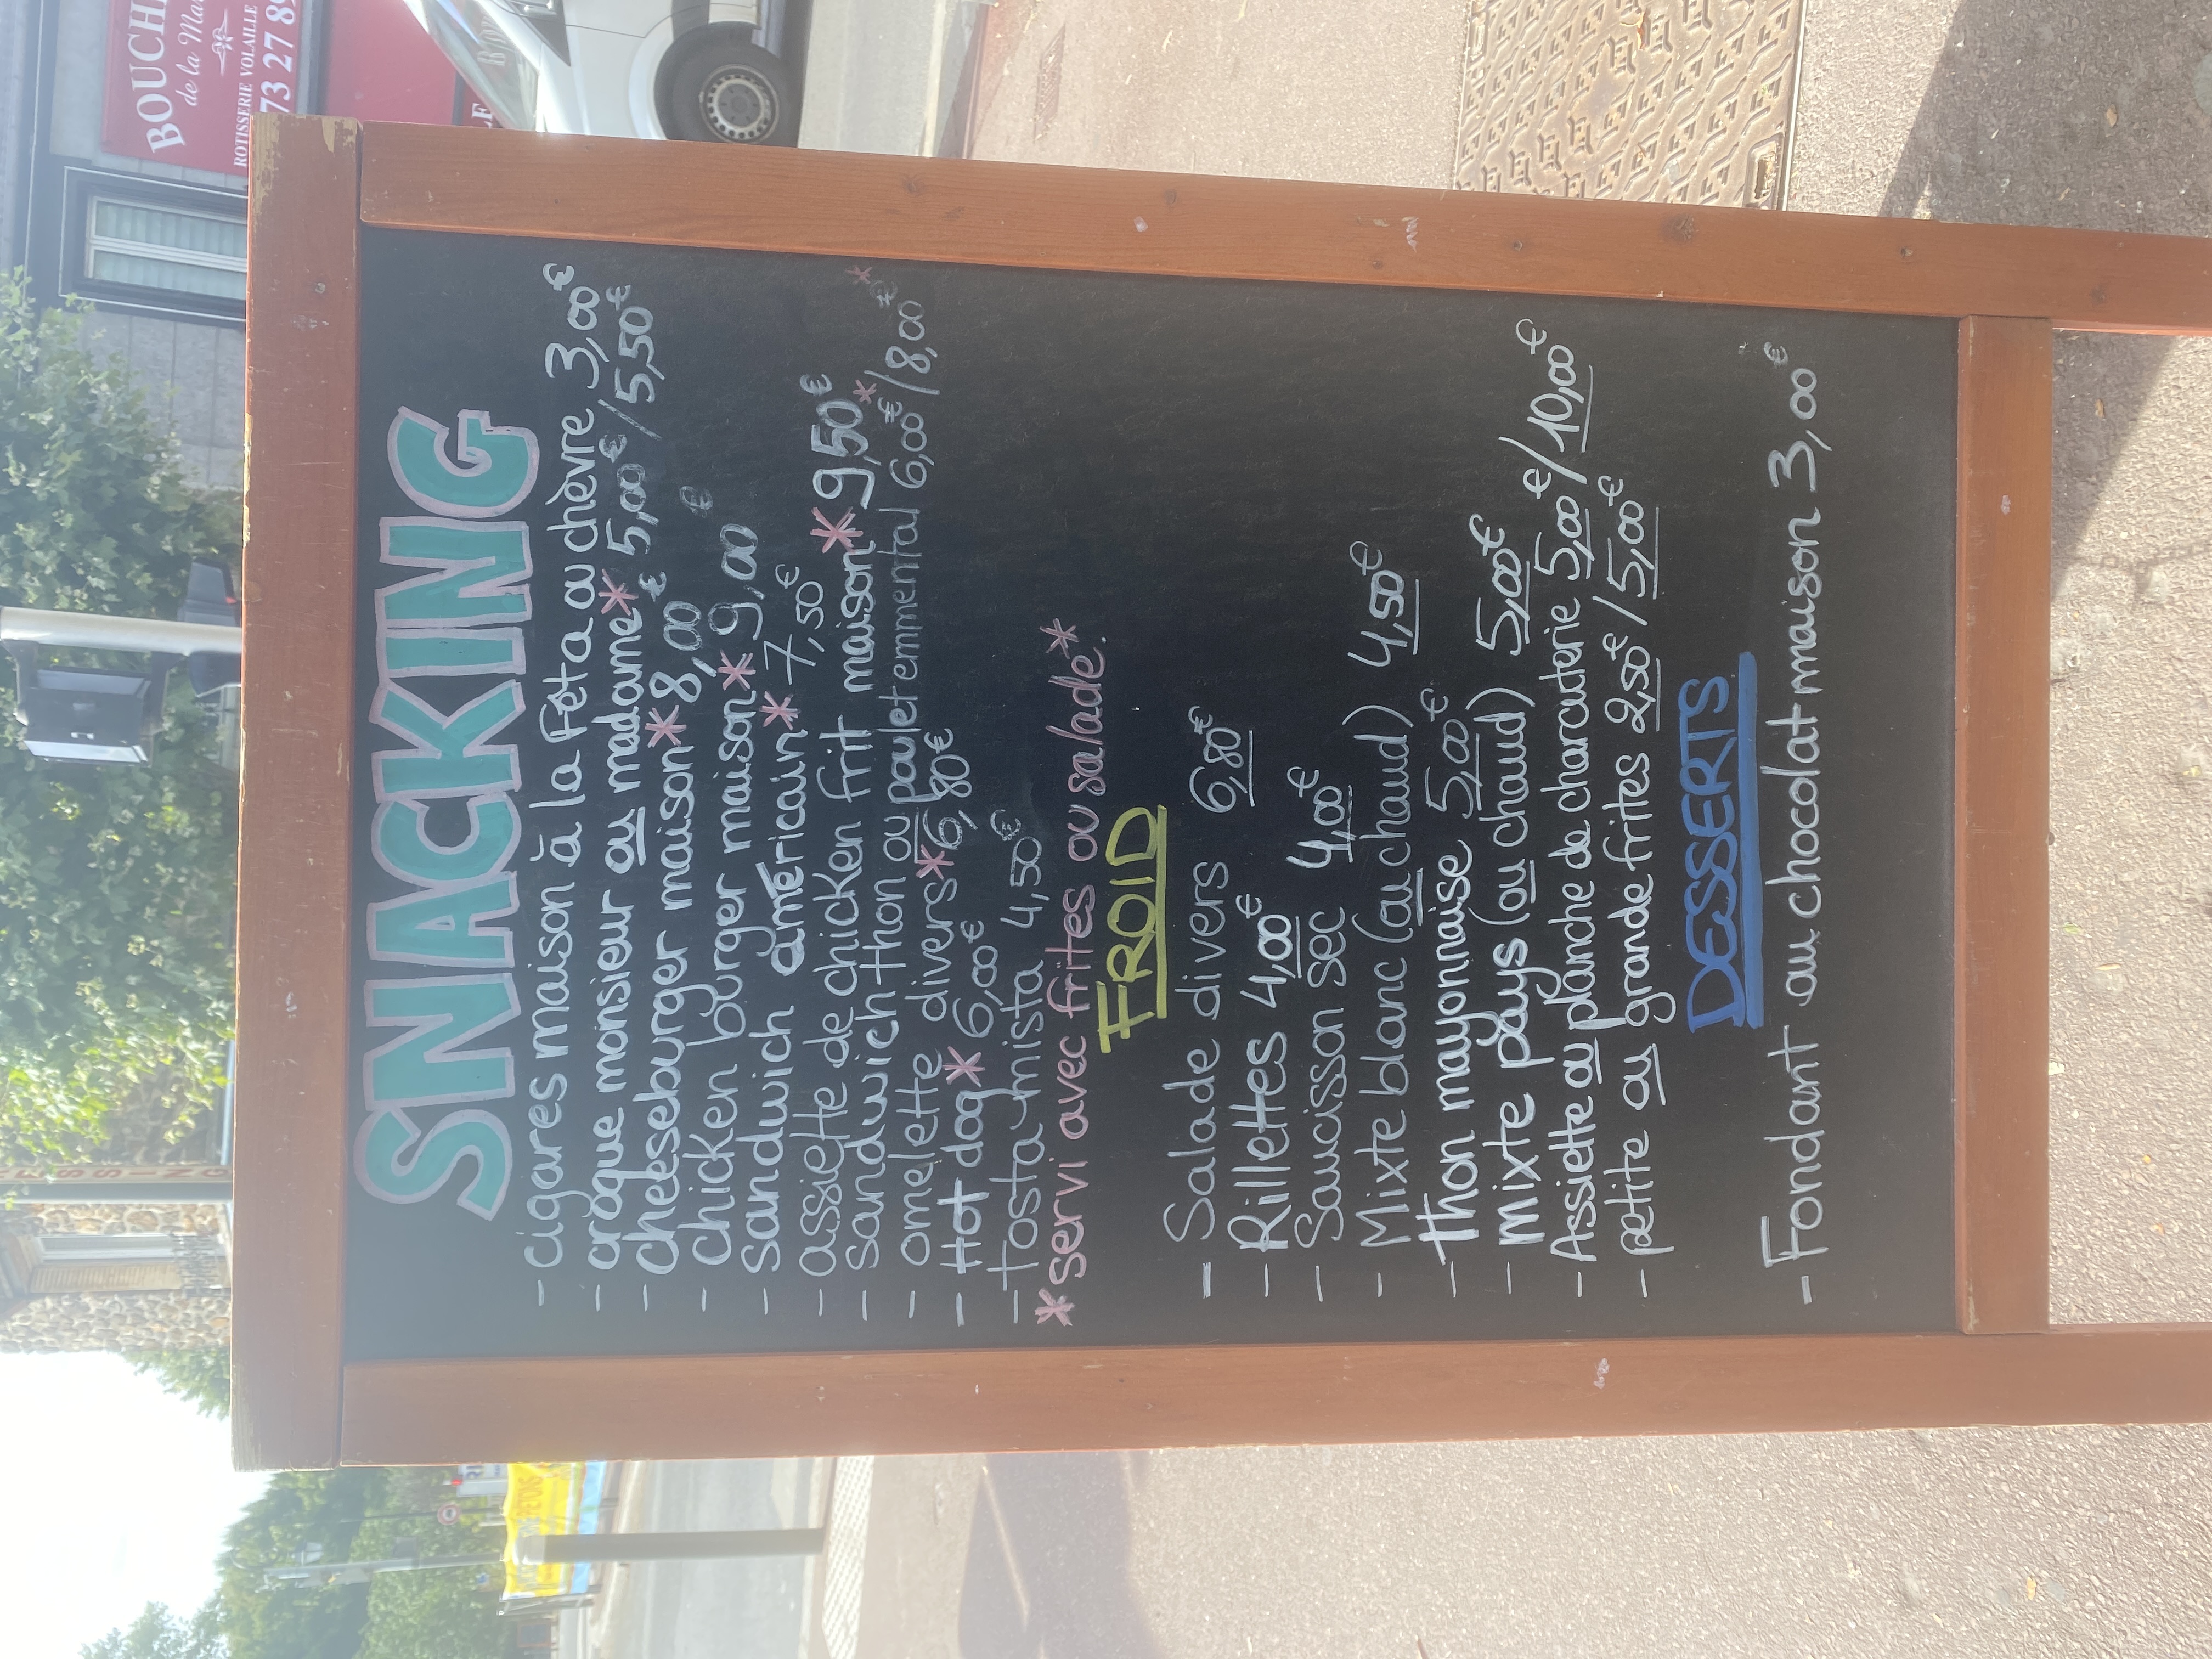 BOUCHE
de la Mar
ROTISSERIE VOLAILLE
73 27 8
LE
SNACKING
- cigares maison à la Fêta ou chèvre 3,00€
- croque monsieur ou madame* 5,00€ / 5,50€
- cheeseburger maison* 8,00€
- Chicken burger maison* 9,00€
- sandwich américain* 7,50€
- assiette de chicken frit maison* 9,50€
- sandwich thon ou poulet emmental 6,00€* / 8,00€*
- omelette divers* 6,80€
- Hot dog* 6,00€
- Tosta mista 4,50€
* servi avec frites ou salade. *
FROID
- Salade divers 6,80€
- Rillettes 4,00€
- Saucisson sec 4,00€
- Mixte blanc (ou chaud) 4,50€
- thon mayonnaise 5,00€
- mixte pays (ou chaud) 5,00€
- Assiette ou planche de charcuterie 5,00€/10,00€
- petite ou grande frites 2,50€ / 5,00€
DESSERTS
- Fondant au chocolat maison 3,00€